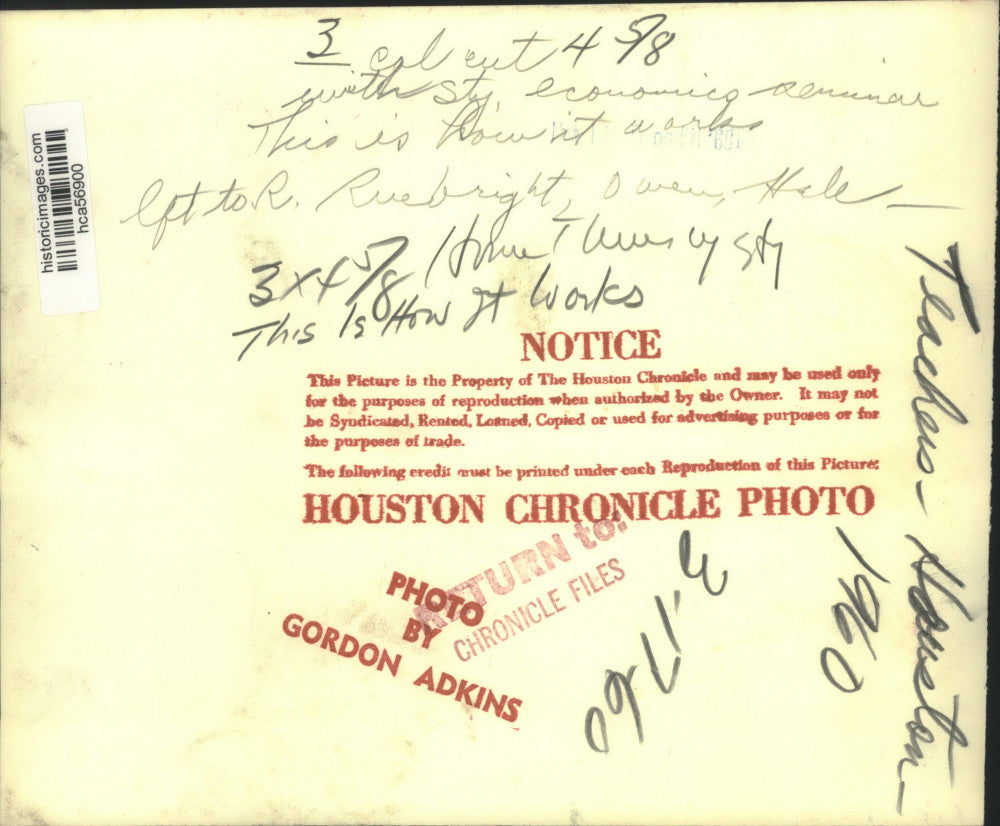 3 col cut 4 5/8
with sty, economics seminar
This is how it works
lft to R. Ruebright, Owen, Hale —
3 x 4 5/8 / Home Thurs sty
This Is How It Works
historicimages.com
hca56900
NOTICE
This Picture is the Property of The Houston Chronicle and may be used only
for the purposes of reproduction when authorized by the Owner. It may not
be Syndicated, Rented, Loaned, Copied or used for advertising purposes or for
the purposes of trade.
The following credit must be printed under each Reproduction of this Picture:
HOUSTON CHRONICLE PHOTO
RETURN to:
CHRONICLE FILES
PHOTO
BY
GORDON ADKINS
Teachers - Houston -
1960